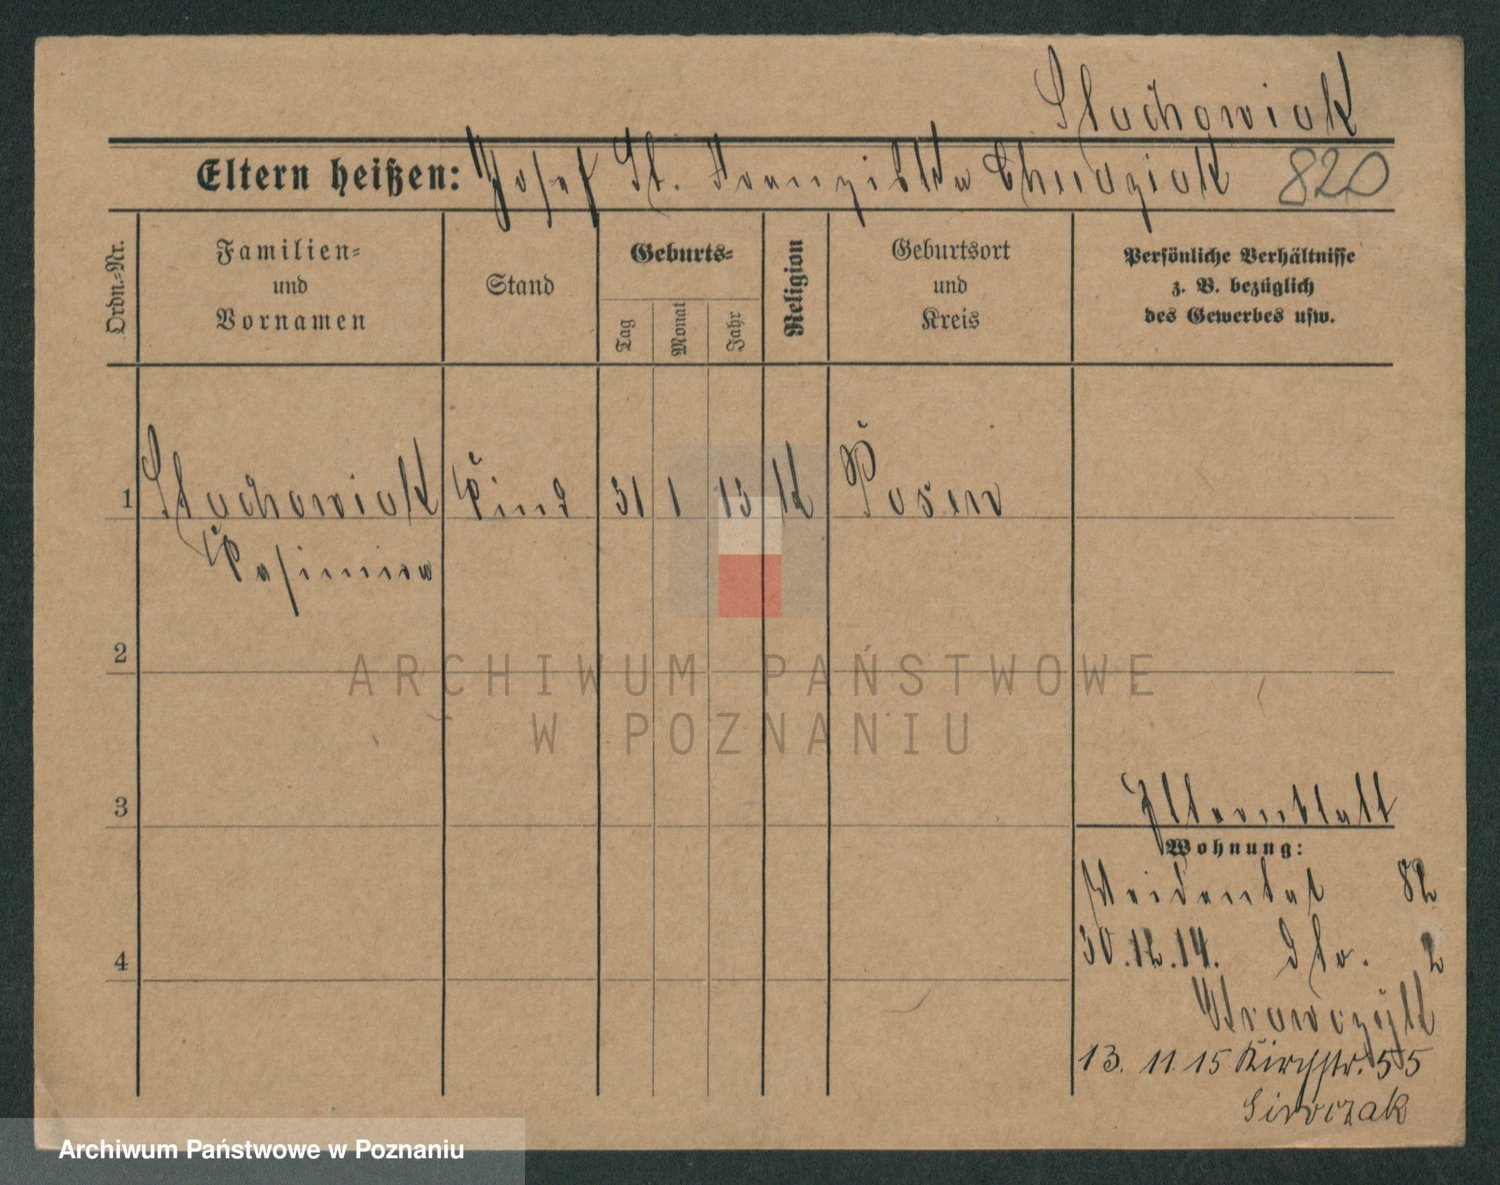 Stachowiak
Eltern heißen: Josef St. Franziska Chudziak 820
Ordn.-Nr.
Familien-
und
Vornamen
Stand
Geburts-
Tag
Monat
Jahr
Religion
Geburtsort
und
Kreis
Persönliche Verhältnisse
z. B. bezüglich
des Gewerbes usw.
1 Stachowiak Kind 31 1 13 k Posen
Kasimira
2
3
4
Elternblatt
Wohnung:
82
30.12.14. dto. 2
13. 11. 15 Kirchstr. 55
ARCHIWUM PAŃSTWOWE
W POZNANIU
Archiwum Państwowe w Poznaniu